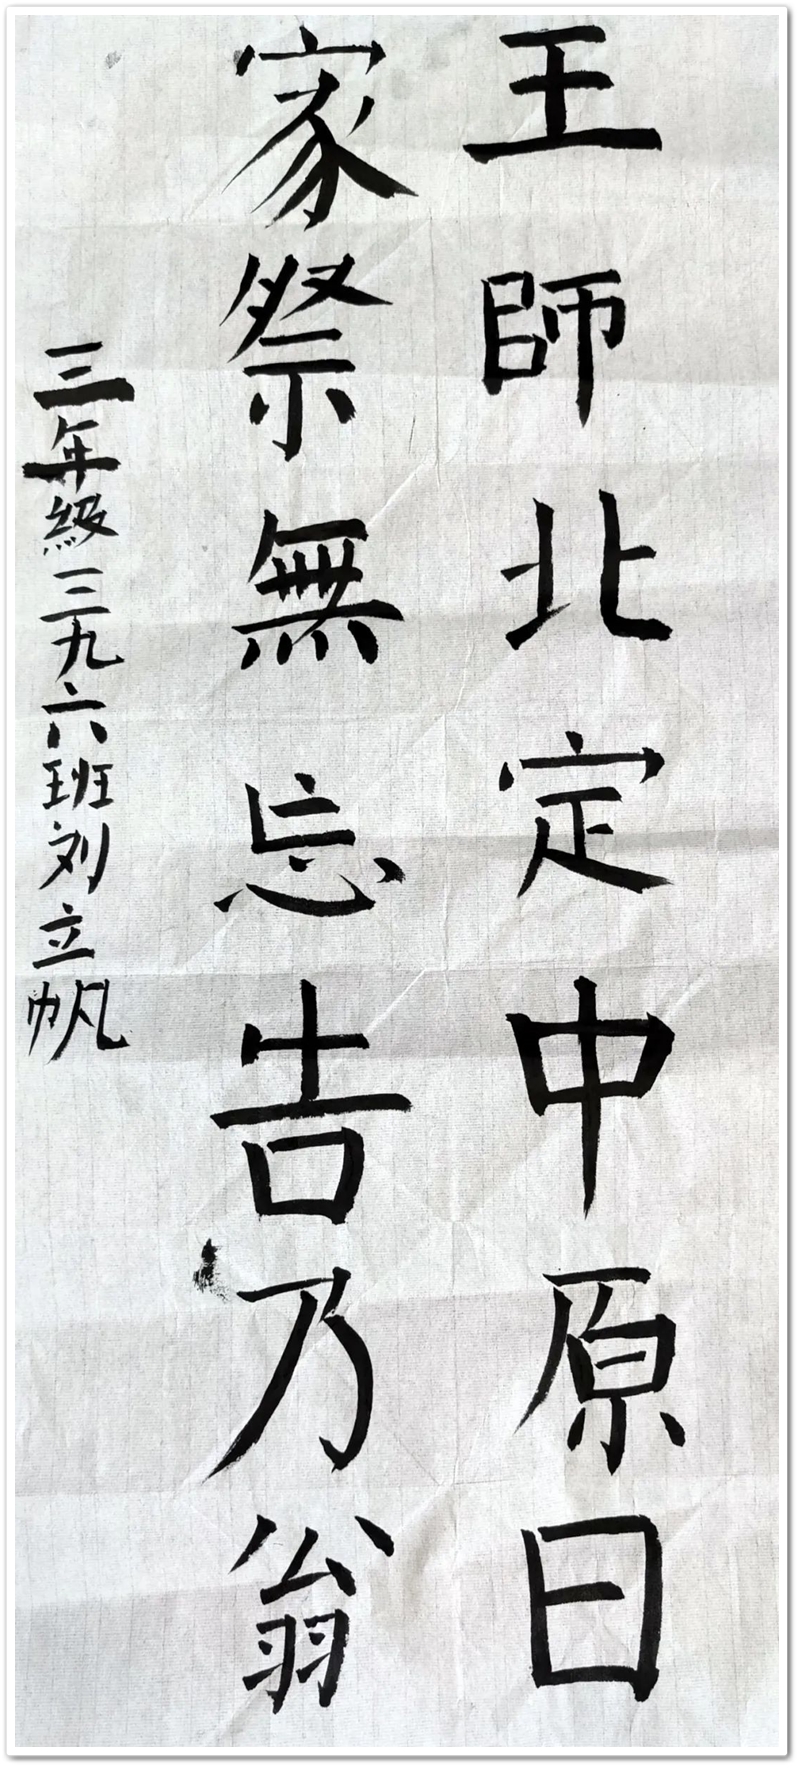 王師北定中原日
家祭無忘告乃翁
三年級三九六班刘立帆